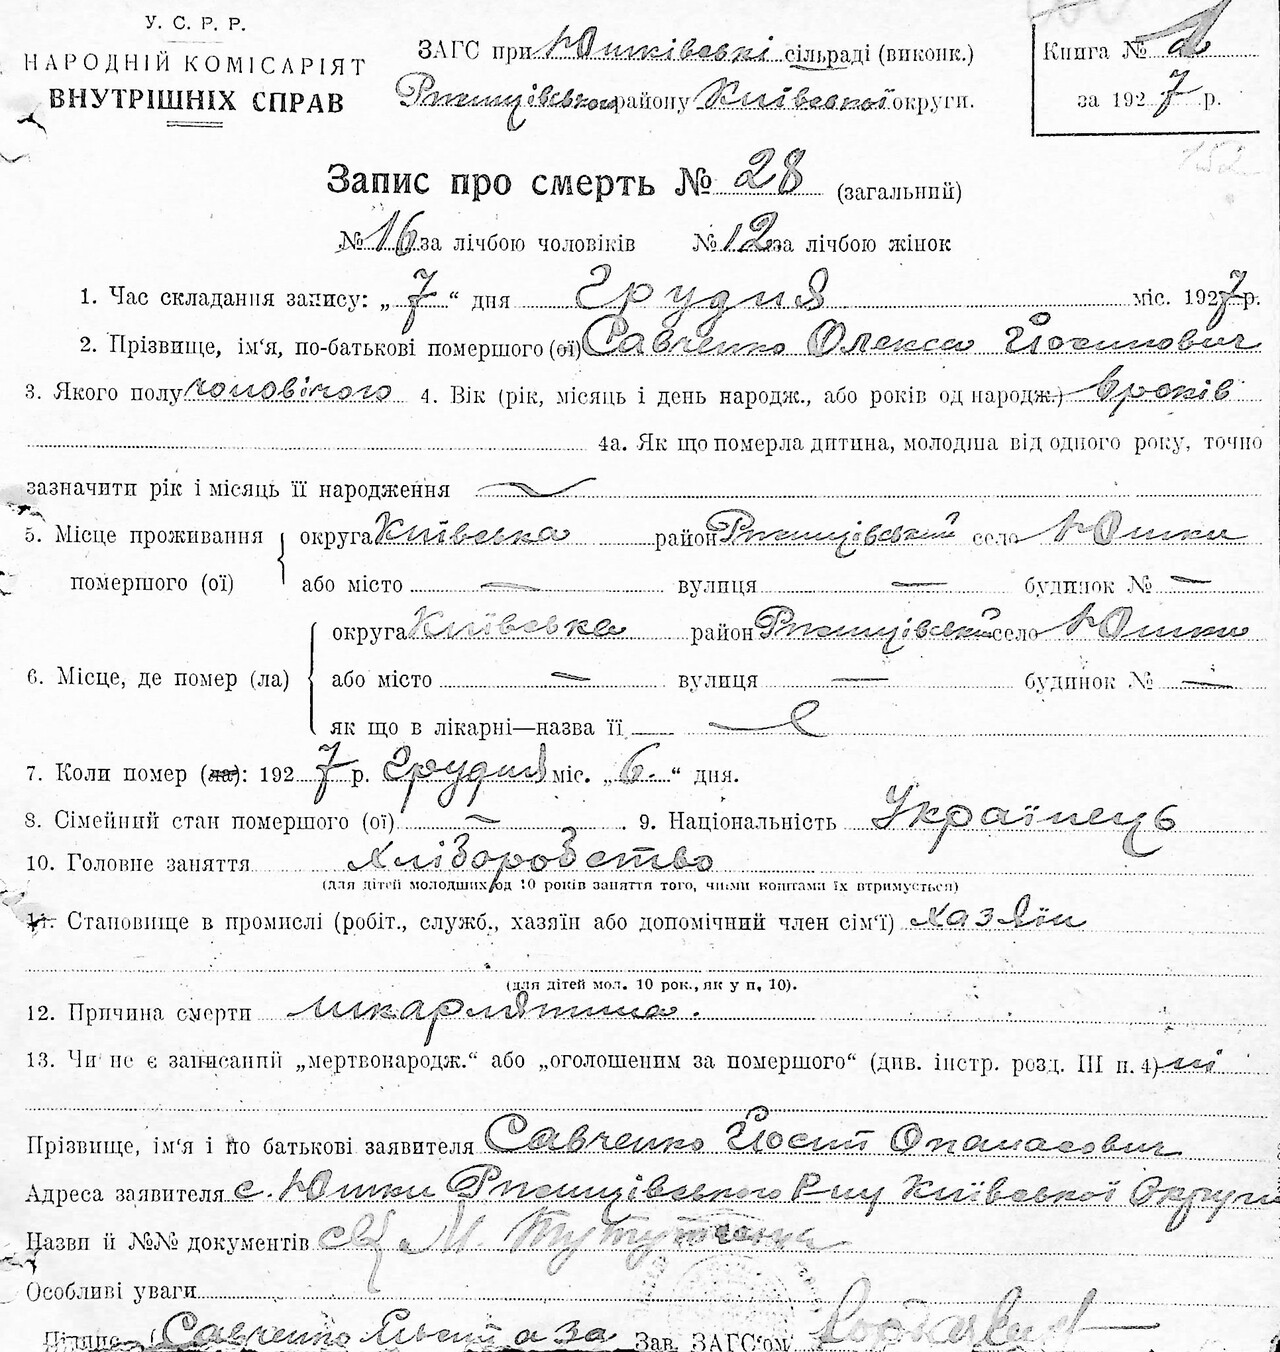 У. С. Р. Р.
НАРОДНІЙ КОМІСАРІЯТ
ВНУТРІШНІХ СПРАВ
ЗАГС при Юшківські сільраді (виконк.)
Ржищівського району Київської округи.
Книга №
за 1927 р.
152
Запис про смерть № 28 (загальний)
№ 16 за лічбою чоловіків № 12 за лічбою жінок
1. Час складання запису: „ 7 “ дня Грудня міс. 1927 р.
2. Прізвище, ім‘я, по-батькові помершого (ої) Савченко Олекса Йосипович
3. Якого полу чоловічого 4. Вік (рік, місяць і день народж., або років од народж.) 6 років
4а. Як що померла дитина, молодша від одного року, точно
зазначити рік і місяць її народження —
5. Місце проживання помершого (ої) округа Київська район Ржищівський село Юшки
або місто — вулиця — будинок № —
6. Місце, де помер (ла) округа Київська район Ржищівський село Юшки
або місто — вулиця — будинок № —
як що в лікарні—назва її —
7. Коли помер (ла): 1927 р. Грудня міс. „ 6. “ дня.
8. Сімейний стан помершого (ої) — . 9. Національність Українець
10. Головне заняття хліборобство
(для дітей молодших од 10 років заняття того, чиїми коштами їх втримується)
11. Становище в промислі (робіт., служб., хазяїн або допомічний член сім‘ї) хазяїн
(для дітей мол. 10 рок., як у п. 10).
12. Причина смерти шкарлятина.
13. Чи не є записаний „мертвонародж.“ або „оголошеним за помершого“ (див. інстр. розд. III п. 4) ні
Прізвище, ім‘я і по батькові заявителя Савченко Йосип Опанасович
Адреса заявителя с. Юшки Ржищівського Р-ну Київської Округи
Назви й №№ документів
Особливі уваги
Підпис Савченко а за Зав. ЗАГС‘ом